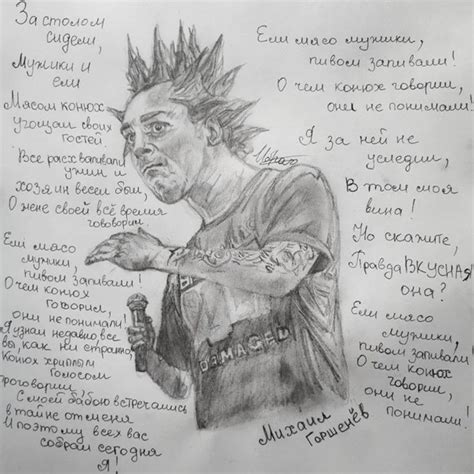 За столом
сидели,
Мужики и
ели
Мясом конюх
угощал своих
гостей.
Все расхваливали
ужин и
хозяин весел был,
О жене своей всё время
говорил.
Ели мясо
мужики,
пивом запивали!
О чем конюх
говорил,
они не понимали!
Я узнал недавно, все
вы, как ни странно,
Конюх хриплым
голосом
проговорил
С моей бабою встречались
в тайне от меня
И поэтому всех вас
собрал сегодня
Я!
Ели мясо мужики,
пивом запивали!
О чем конюх говорил,
они не понимали!
Я за ней не
уследил,
В том моя
вина!
Но скажите,
Правда ВКУСНАЯ
она?
Ели мясо
мужики,
пивом запивали
О чем конюх
говорил,
они не
понимали!
DAMAGED
Михаил
Горшенёв